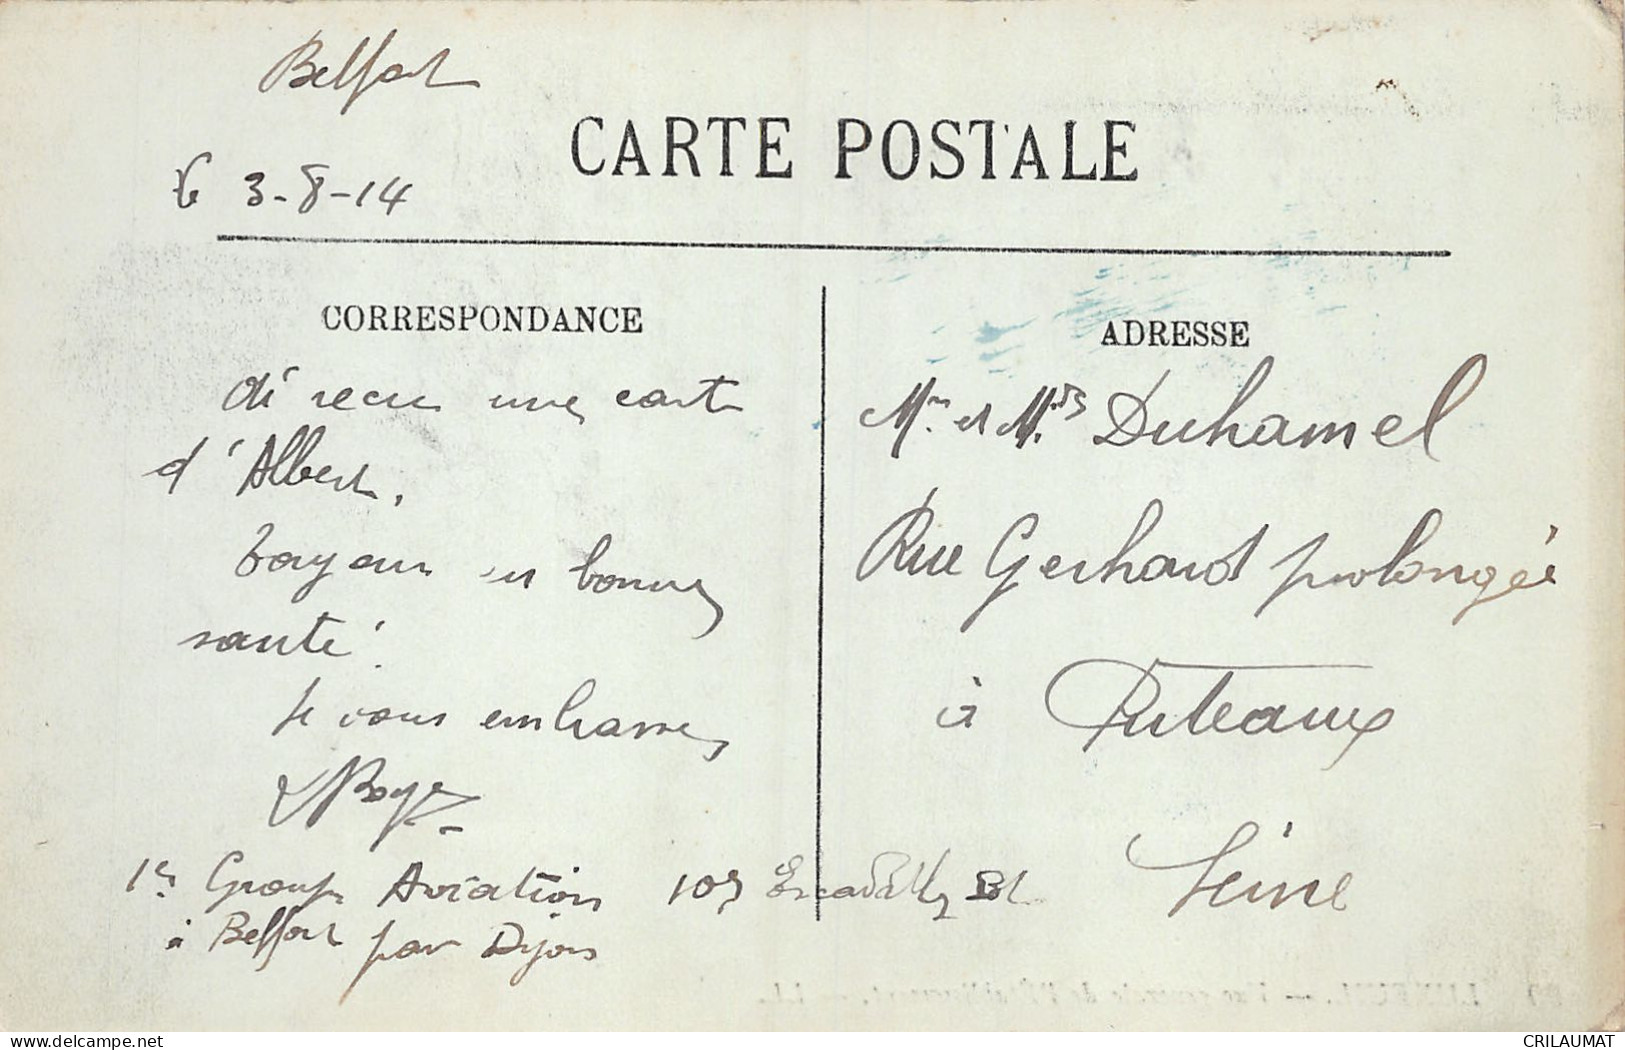 Belfort
le 3-8-14
CARTE POSTALE
CORRESPONDANCE
ai recu une carte
d'Albert.
Toujours en bonne
santé.
Je vous embrasse
1er Groupe Aviation 10
à Belfort par Dijon
ADRESSE
Mr et M. Duhamel
Rue Gerhard prolongée
à Puteaux
Seine
delcampe.net
CRILAUMAT